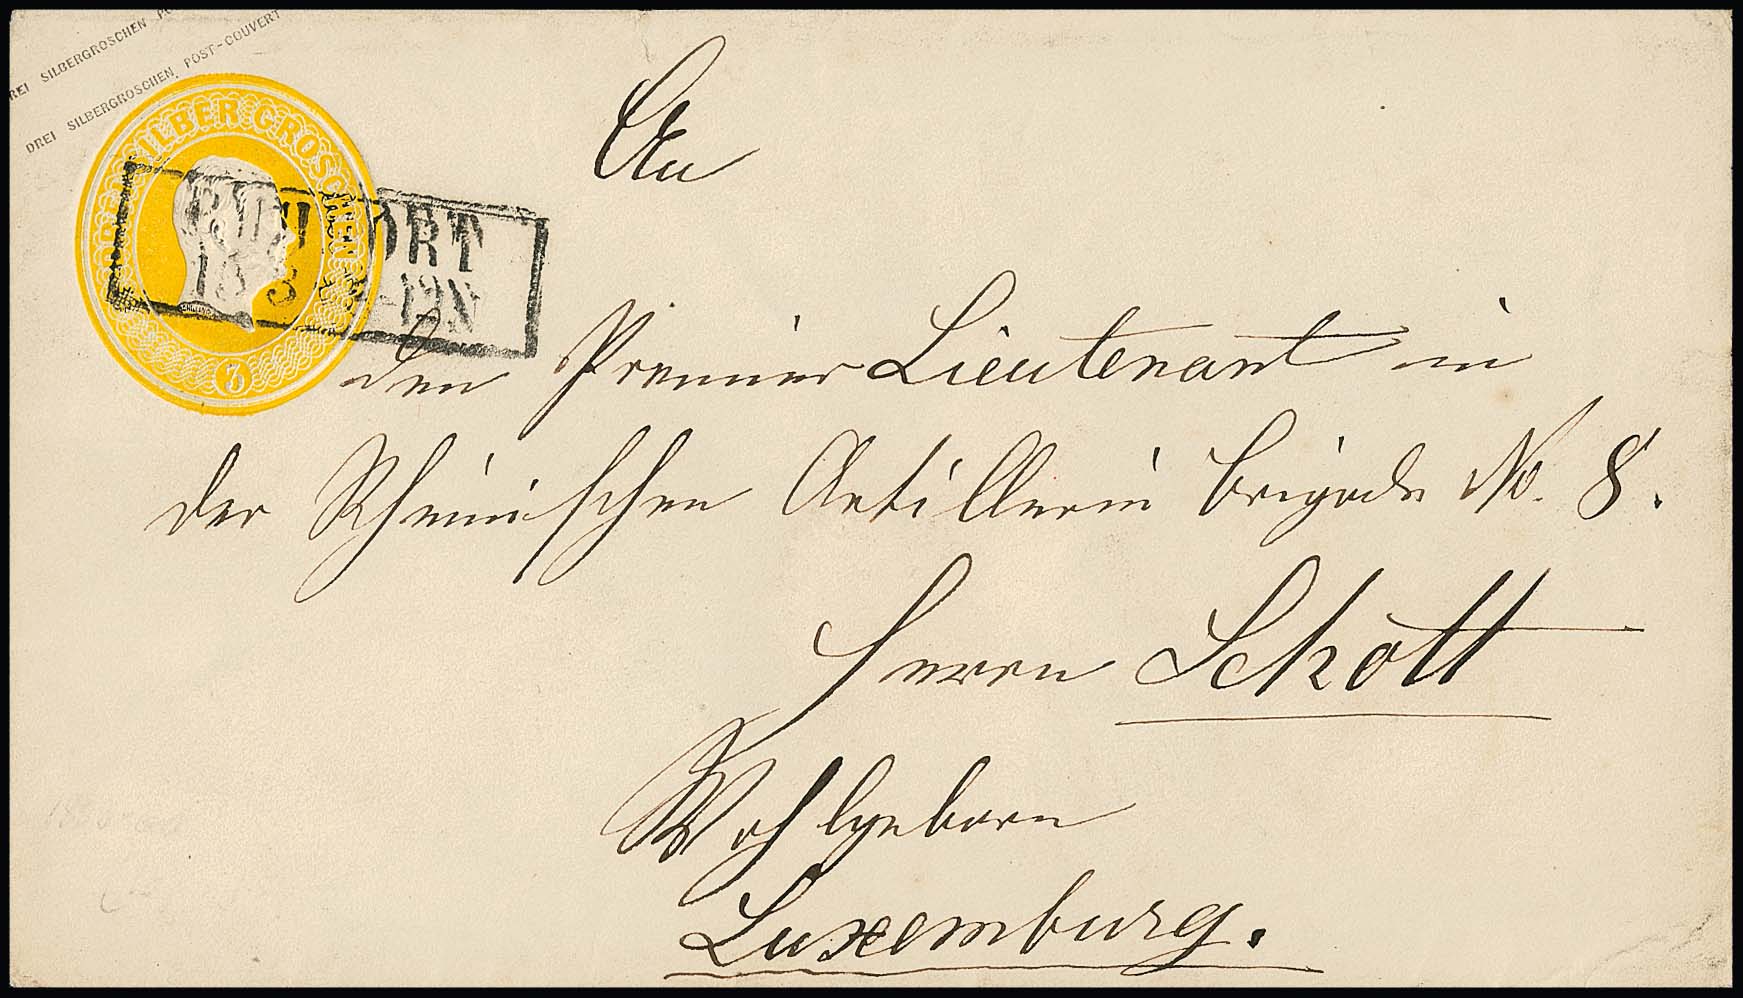 REI SILBERGROSCHEN
DREI SILBERGROSCHEN. POST-COUVERT
DREI SILBER GROSCHEN
3
An
den Premier Lieutenant in
der Rheinischen Artillerie Brigade No. 8.
Herrn Schott
Wohlgeborn
Luxemburg.